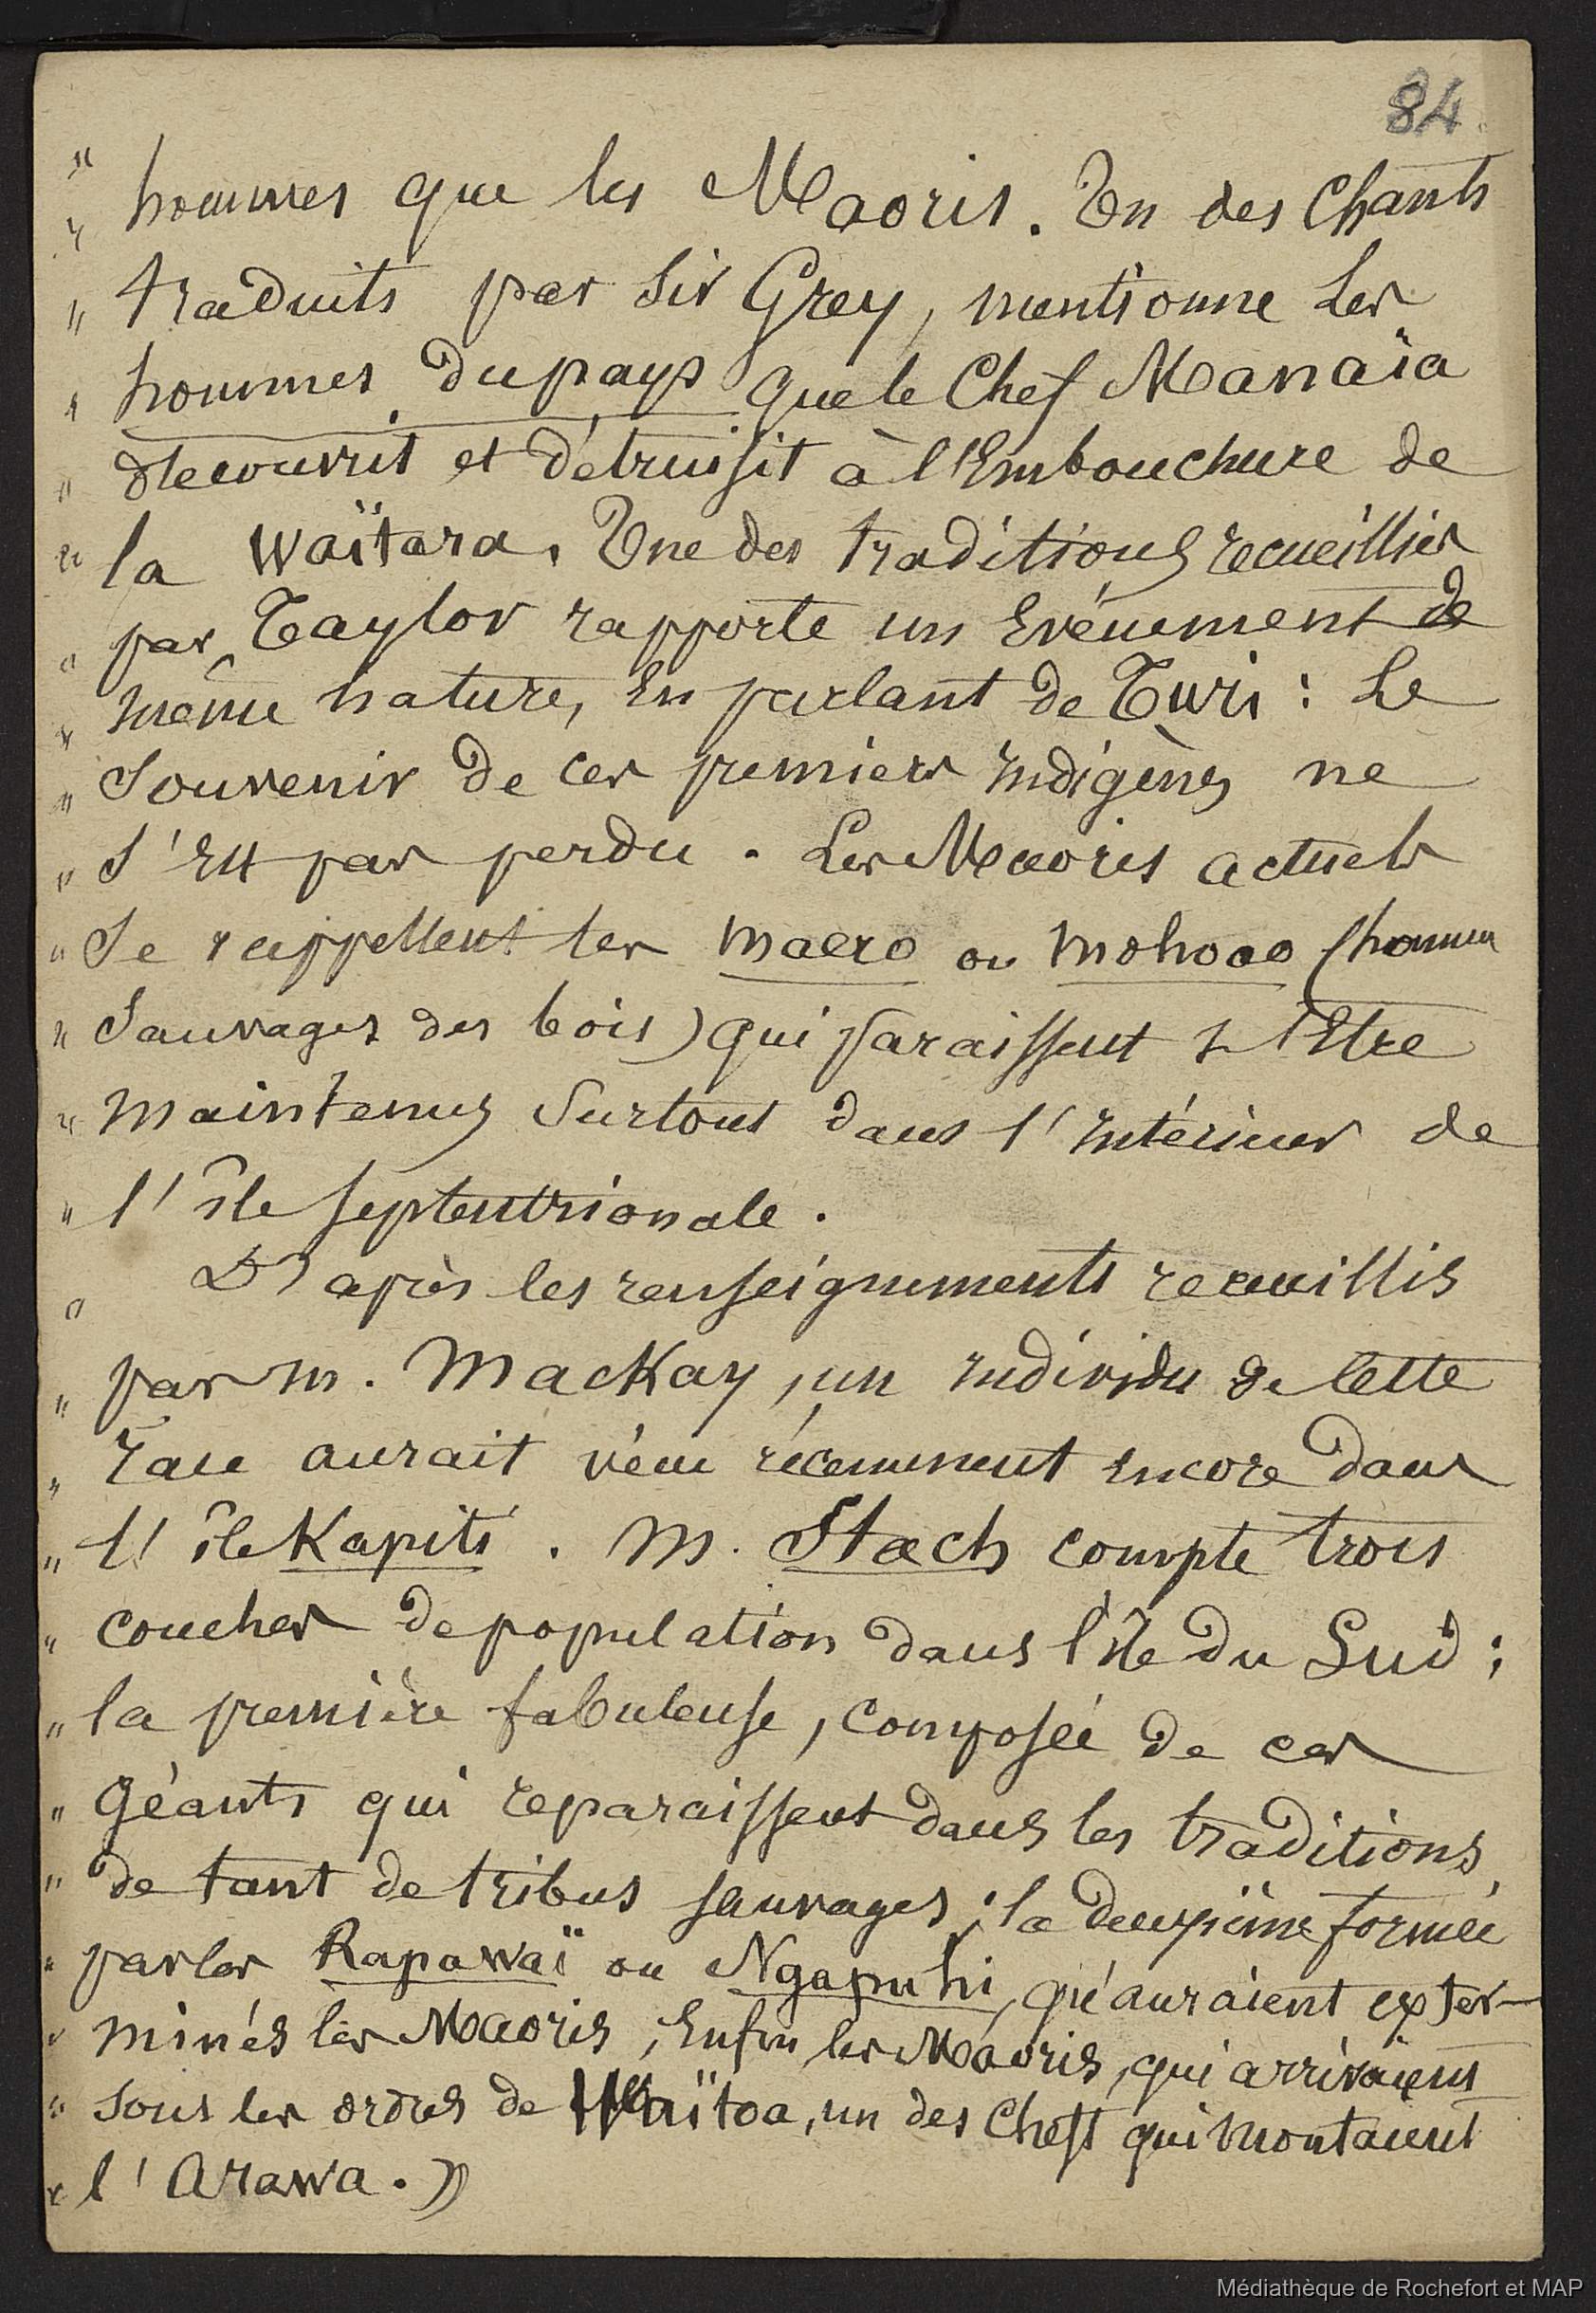 84
" hommes que les Maoris. Un des Chants
" traduits par Sir Grey, mentionne les
" hommes du pays que le Chef Manaïa
" découvrit et détruisit à l'Embouchure de
" la Waïtara. Une des traditions recueillies
" par Taylor rapporte un Evénement de
" même nature, En parlant de Turi : Le
" Souvenir de ces premiers Indigènes ne
" S'Est pas perdu. Les Maoris actuels
" Se rappellent les Maero ou Mohoao (hommes
" Sauvages des bois) qui paraissent s'Etre
" Maintenus Surtout dans l'Intérieur de
" l'île septentrionale.
" D'après les renseignements recueillis
" par M. Mackay, un Individu de Cette
" race aurait vécu récemment Encore dans
" l'île Kapiti. M. Stach compte trois
" couches de population dans l'île du Sud ;
" la première fabuleuse, composée de ces
" Géants qui reparaissent dans les traditions
" de tant de tribus sauvages ; la deuxième formée
" par les Rapawaï ou Ngapuhi, qu'auraient exter-
" minés les Maoris, Enfin les Maoris, qui arrivaient
" Sous les ordres de Waïtoa, un des Chefs qui Montaient
" l'Arawa. »
Médiathèque de Rochefort et MAP